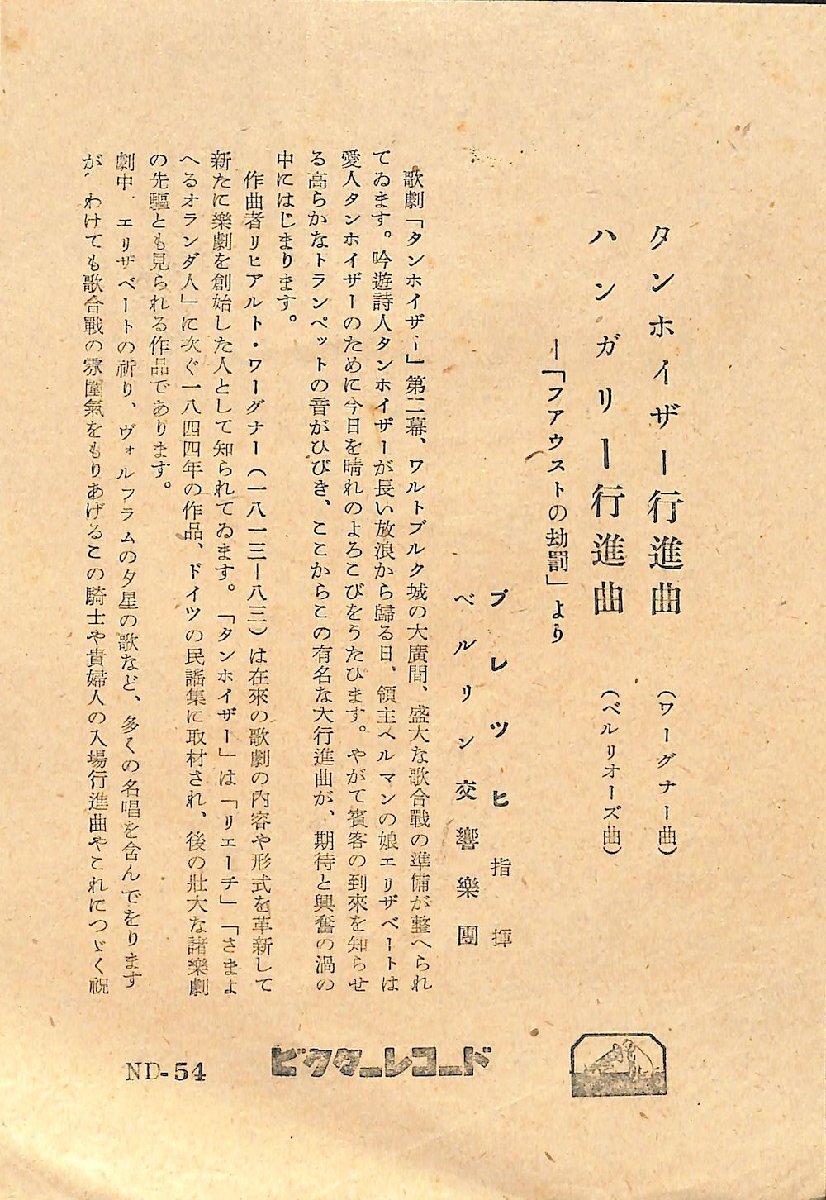 タンホイザー行進曲　（ワーグナー曲）
ハンガリー行進曲　（ベルリオーズ曲）
―「フアウストの劫罰」より
ブレツヒ指揮
ベルリン交響樂團
歌劇「タンホイザー」第二幕、ワルトブルク城の大廣間、盛大な歌合戰の準備が整へられ
てゐます。吟遊詩人タンホイザーが長い放浪から歸る日、領主ヘルマンの娘エリザベートは
愛人タンホイザーのために今日を晴れのよろこびをうたひます。やがて賓客の到來を知らせ
る高らかなトランペットの音がひびき、ここからこの有名な大行進曲が、期待と興奮の渦の
中にはじまります。
作曲者リヒアルト・ワーグナー（一八一三―八三）は在來の歌劇の内容や形式を革新して
新たに樂劇を創始した人として知られてゐます。「タンホイザー」は「リエーチ」「さまよ
へるオランダ人」に次ぐ一八四四年の作品、ドイツの民謠集に取材され、後の壯大な諸樂劇
の先驅とも見られる作品であります。
劇中、エリザベートの祈り、ヴォルフラムの夕星の歌など、多くの名唱を含んでをります
が、わけても歌合戰の雰圍氣をもりあげるこの騎士や貴婦人の入場行進曲やこれにつゞく祝
ND-54
ビクターレコード